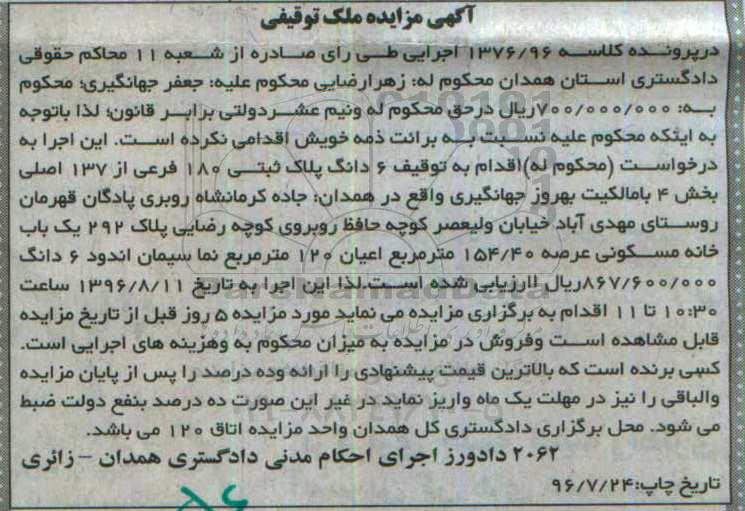 آگهی مزایده ملک توقیفی
درپرونده کلاسه ۱۳۷۶/۹۶ اجرایی طی رای صادره از شعبه ۱۱ محاکم حقوقی
دادگستری استان همدان محکوم له: زهرارضایی محکوم علیه: جعفر جهانگیری؛ محکوم
به: ۷۰۰/۰۰۰/۰۰۰ریال درحق محکوم له ونیم عشردولتی برابر قانون؛ لذا باتوجه
به اینکه محکوم علیه نسبت به برائت ذمه خویش اقدامی نکرده است. این اجرا به
درخواست (محکوم له)اقدام به توقیف ۶ دانگ پلاک ثبتی ۱۸۰ فرعی از ۱۳۷ اصلی
بخش ۴ بامالکیت بهروز جهانگیری واقع در همدان: جاده کرمانشاه روبری پادگان قهرمان
روستای مهدی آباد خیابان ولیعصر کوچه حافظ روبروی کوچه رضایی پلاک ۲۹۲ یک باب
خانه مسکونی عرصه ۱۵۴/۴۰ مترمربع اعیان ۱۲۰ مترمربع نما سیمان اندود ۶ دانگ
۸۶۷/۶۰۰/۰۰۰ریال لارزیابی شده است.لذا این اجرا به تاریخ ۱۳۹۶/۸/۱۱ ساعت
۱۰:۳۰ تا ۱۱ اقدام به برگزاری مزایده می نماید مورد مزایده ۵ روز قبل از تاریخ مزایده
قابل مشاهده است وفروش در مزایده به میزان محکوم به وهزینه های اجرایی است.
کسی برنده است که بالاترین قیمت پیشنهادی را ارائه وده درصد را پس از پایان مزایده
والباقی را نیز در مهلت یک ماه واریز نماید در غیر این صورت ده درصد بنفع دولت ضبط
می شود. محل برگزاری دادگستری کل همدان واحد مزایده اتاق ۱۲۰ می باشد.
۲۰۶۲ دادورز اجرای احکام مدنی دادگستری همدان – زائری
تاریخ چاپ:۹۶/۷/۲۴